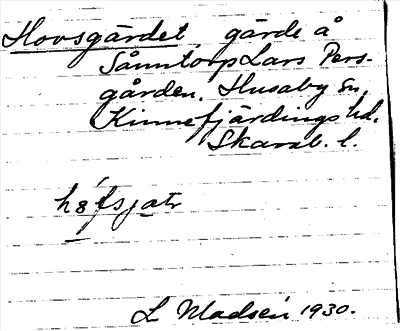 Hovsgärdet, gärde å
Sånntorp Lars Pers-
gården. Husaby sn,
Kinnefjärdings hd.
Skarab. l.
L Madsén 1930.